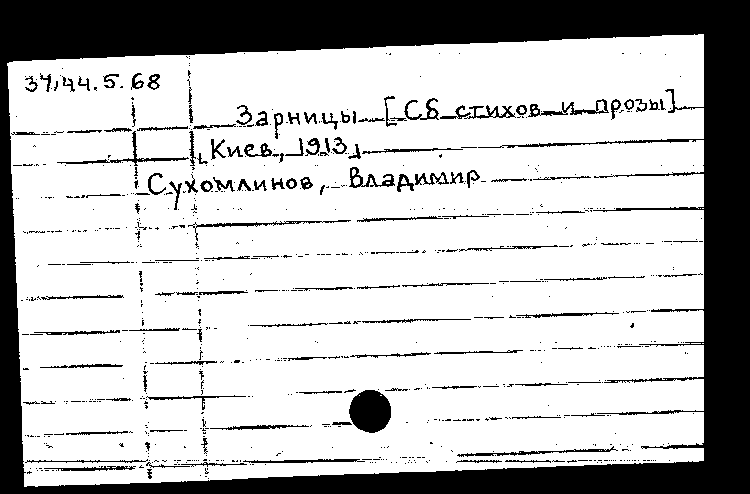 37/44.5.68
Зарницы [Сб стихов и прозы]
Киев, 1913
Сухомлинов, Владимир